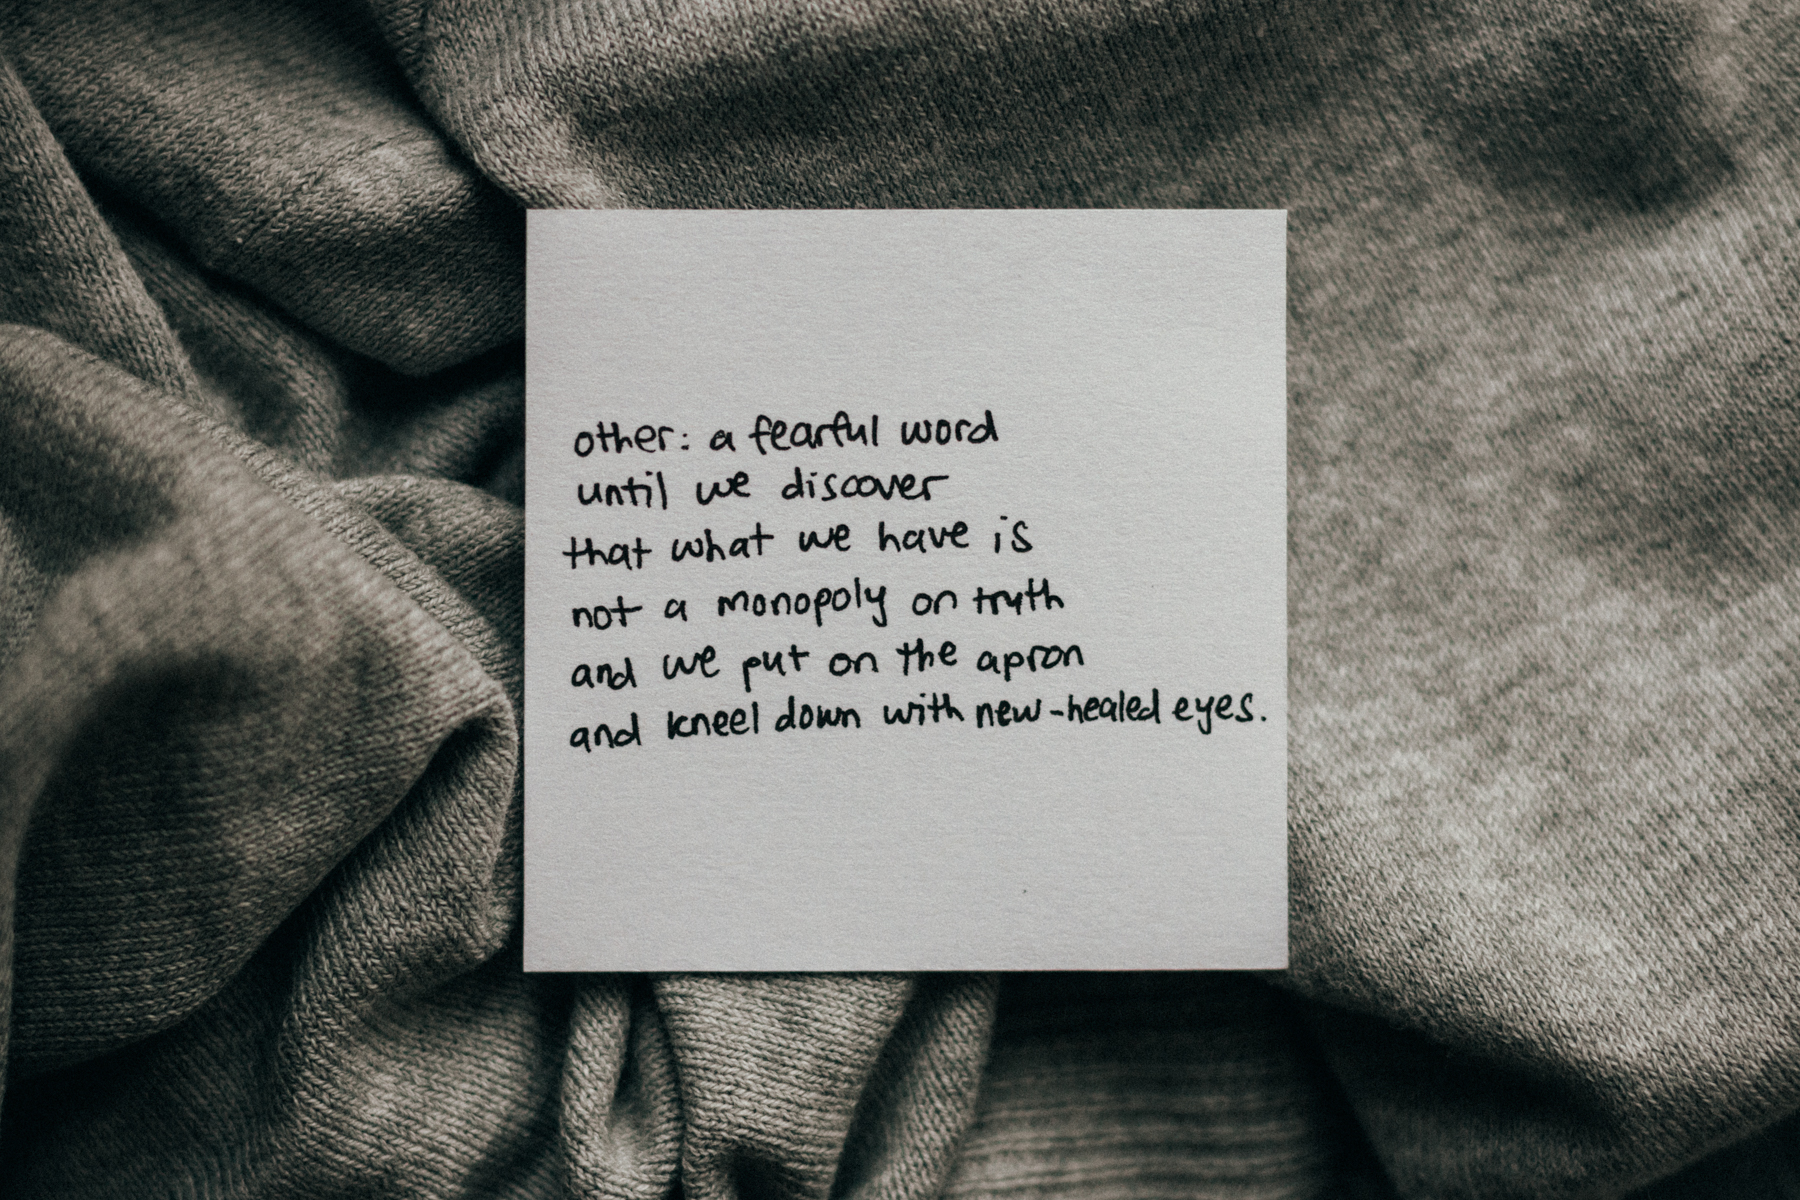 other: a fearful word
until we discover
that what we have is
not a monopoly on truth
and we put on the apron
and kneel down with new-healed eyes.